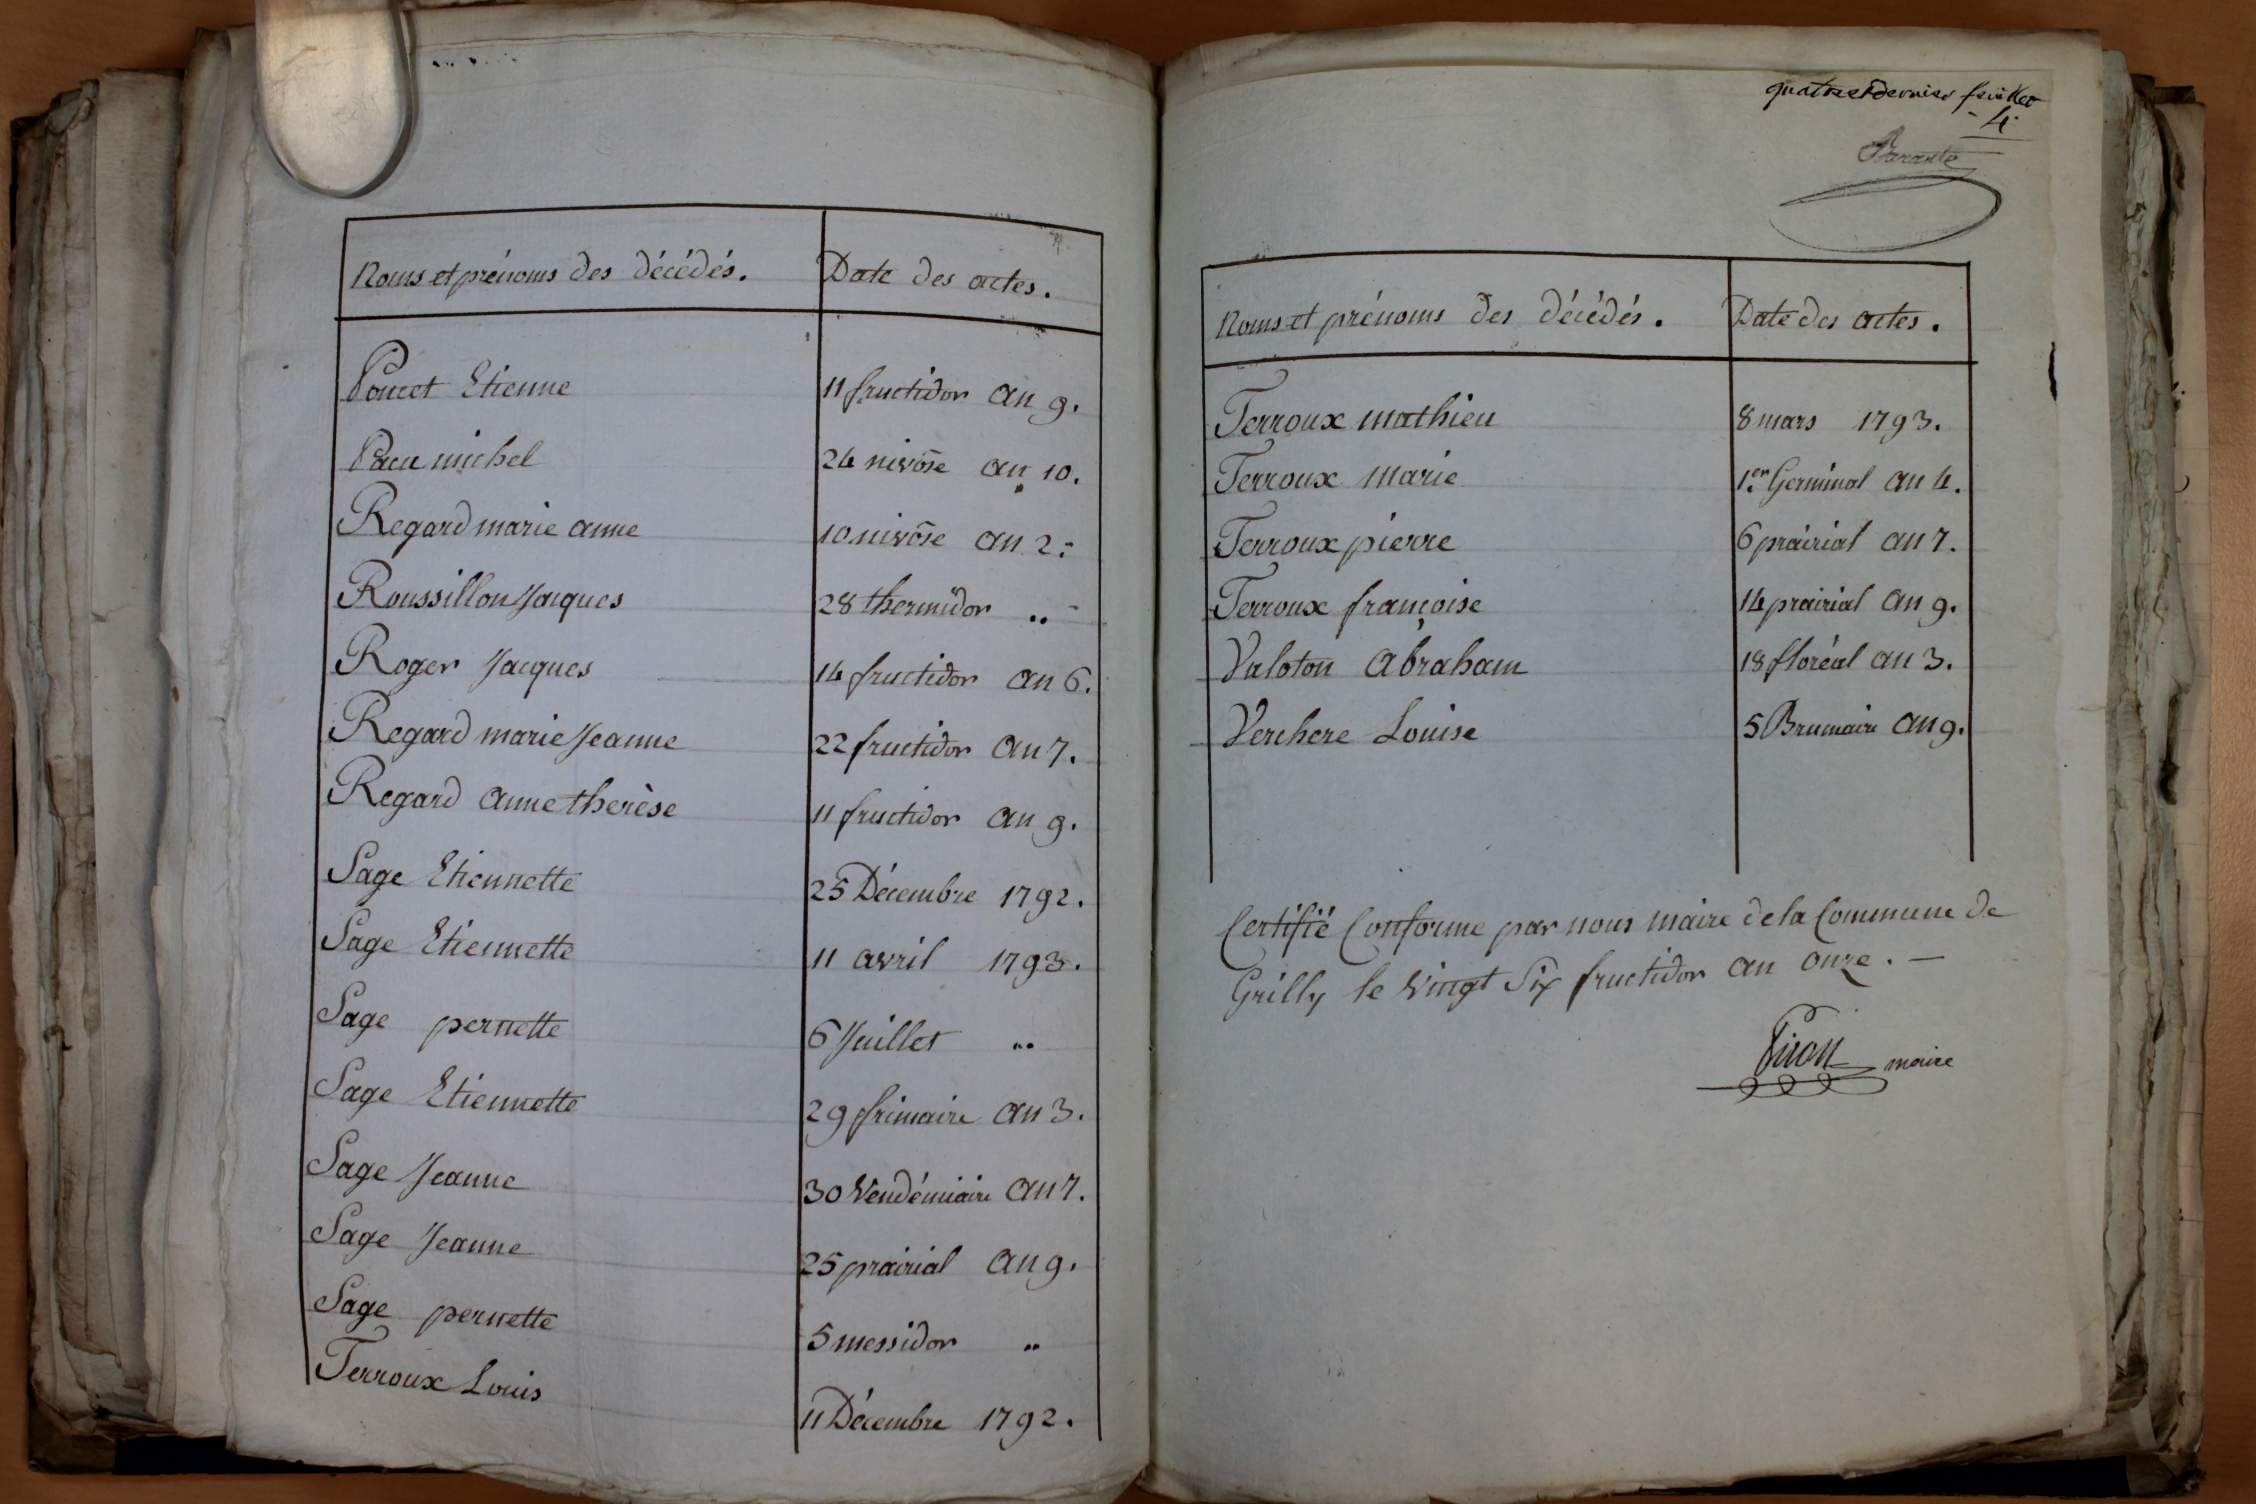 Noms et prénoms des décédés. Date des actes.
Poncet Etienne 11 fructidor an 9.
Pacu michel 24 nivôse an 10.
Regard marie anne 10 nivôse an 2.
Roussillon Jacques 28 thermidor ..
Roger Jacques 14 fructidor an 6.
Regard marie Jeanne 22 fructidor an 7.
Regard anne therèse 11 fructidor an 9.
Sage Etiennette 25 Décembre 1792.
Sage Etiennette 11 avril 1793.
Sage pernette 6 Juillet ..
Sage Etiennette 29 frimaire an 3.
Sage Jeanne 30 Vendémiaire an 7.
Sage Jeanne 25 prairial an 9.
Sage pernette 5 messidor ..
Terroux Louis 11 Décembre 1792.
quatre et dernier feuillet
4.
Barante
Noms et prénoms des décédés. Date des actes.
Terroux mathieu 8 mars 1793.
Terroux marie 1.er Germinal an 4.
Terroux pierre 6 prairial an 7.
Terroux françoise 14 prairial an 9.
Valoton abraham 18 floréal an 3.
Verchere Louise 5 Brumaire an 9.
Certifié Conforme par nous maire de la Commune de
Grilly le vingt Six fructidor an onze. —
maire